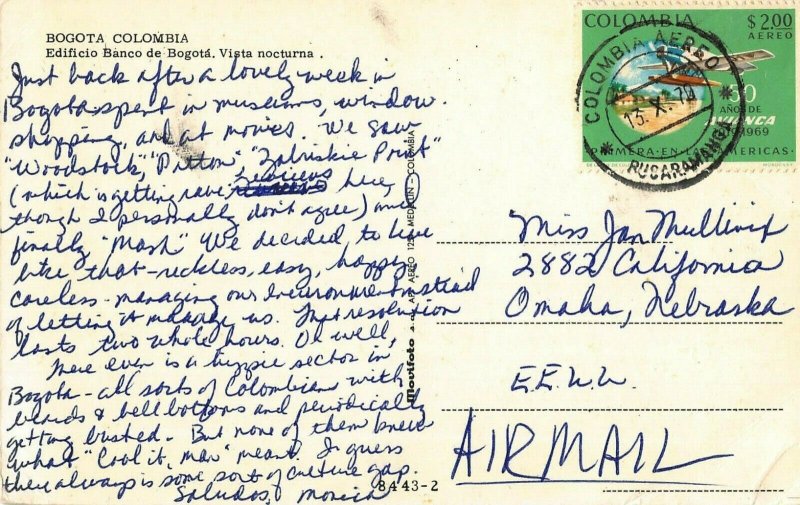 BOGOTA COLOMBIA
Edificio Banco de Bogotá. Vista nocturna.
Just back after a lovely week in
Bogota spent in museums, window
shopping, and at movies. We saw
"Woodstock," "Patton" "Zabriskie Point"
(which is getting rave reviews here,
though I personally don't agree) and
finally "Mash" We decided to live
like that - reckless, easy, happy
careless - managing our environment instead
of letting it manage us. That resolution
lasts two whole hours. Oh well,
There even is a hippie sector in
Bogota - all sorts of Colombians with
beards & bell bottoms and periodically
getting busted. But none of them knew
what "Cool it, man" meant. I guess
there always is some sort of culture gap.
Saludos, Monica
8443-2
Movifoto
APT. AEREO 1259 MEDELLIN - COLOMBIA
COLOMBIA $2.00
AEREO
50
AÑOS DE
AVIANCA
1969
PRIMERA·EN·LAS AMERICAS·
COLOMBIA AEREO
15. X. 70
BUCARAMANGA
Miss Jan Mullinix
2882 California
Omaha, Nebraska
E.E.U.U.
AIRMAIL